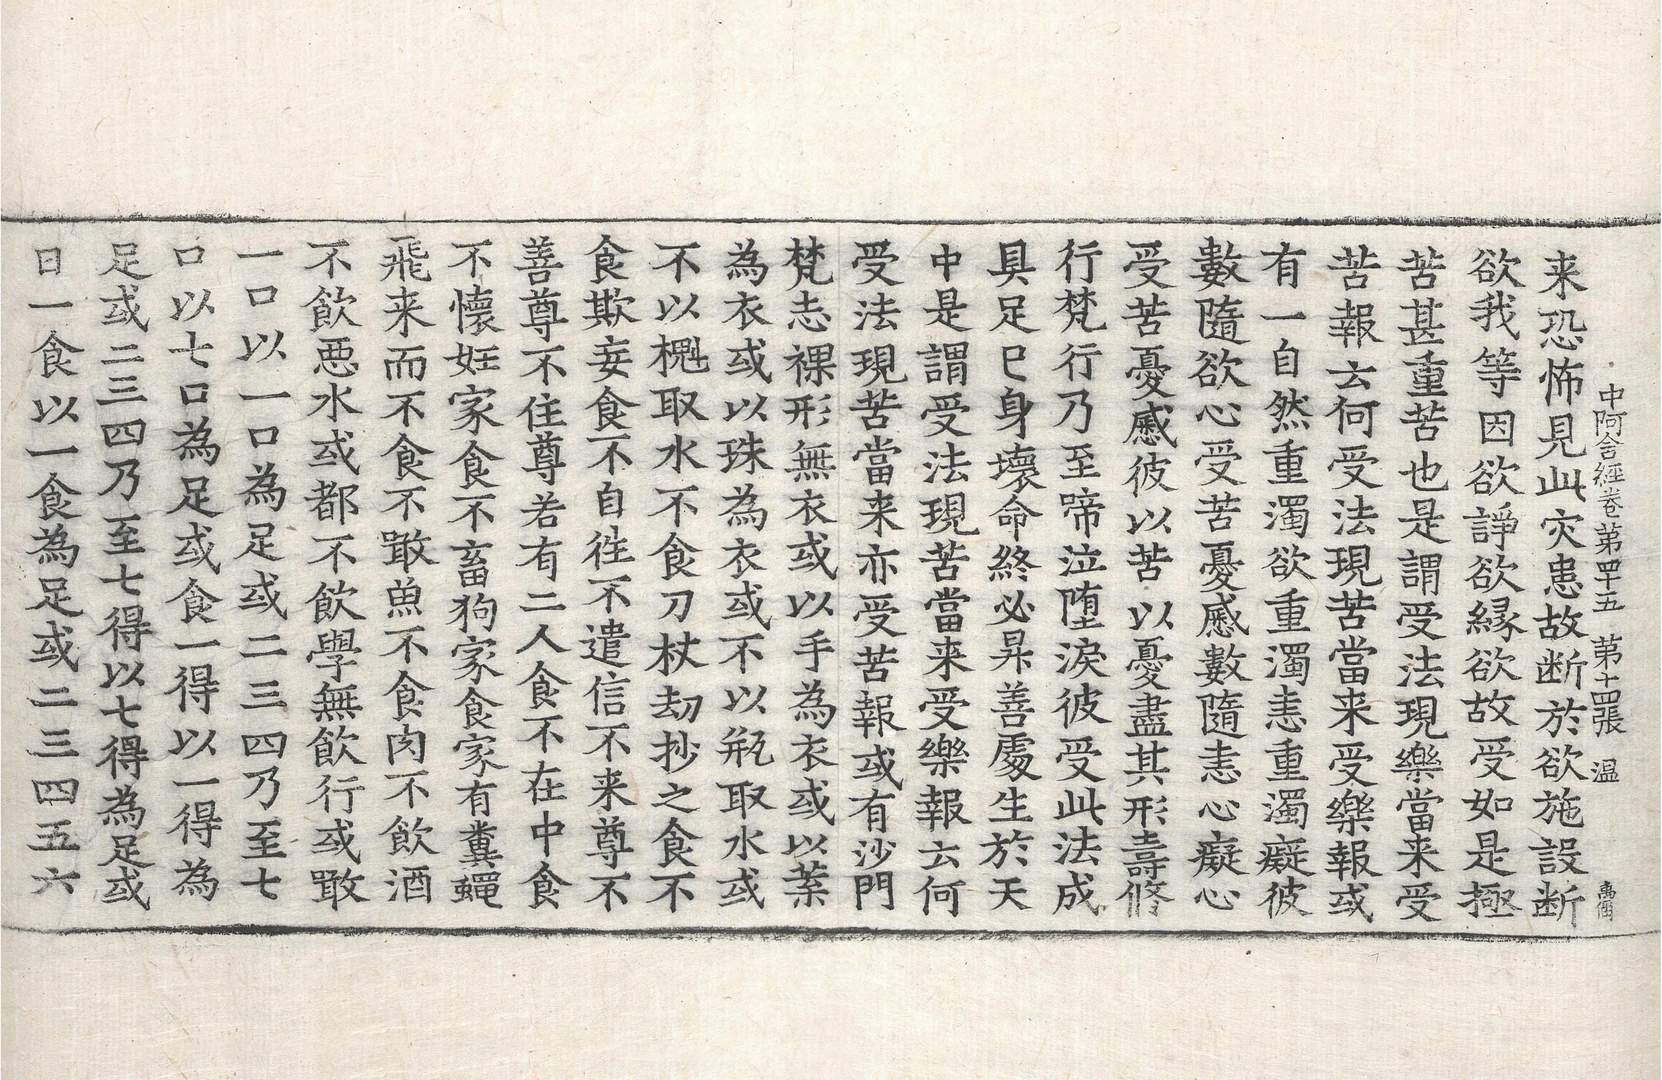 中阿含經卷第四十五　第十四張　温
来恐怖見此灾患故断於欲施設断
欲我等因欲諍欲縁欲故受如是極
苦甚重苦也是謂受法現樂當来受
苦報云何受法現苦當来受樂報或
有一自然重濁欲重濁恚重濁癡彼
數隨欲心受苦憂慼數隨恚心癡心
受苦憂慼彼以苦以憂盡其形壽修
行梵行乃至啼泣堕涙彼受此法成
具足已身壞命終必昇善處生於天
中是謂受法現苦當来受樂報云何
受法現苦當来亦受苦報或有沙門
梵志裸形無衣或以手為衣或以葉
為衣或以珠為衣或不以瓶取水或
不以櫆取水不食刀杖劫抄之食不
食欺妄食不自徃不遣信不来尊不
善尊不住尊若有二人食不在中食
不懷妊家食不畜狗家食家有糞蠅
飛来而不食不噉魚不食肉不飲酒
不飲惡水或都不飲學無飲行或噉
一口以一口為足或二三四乃至七
口以七口為足或食一得以一得為
足或二三四乃至七得以七得為足或
日一食以一食為足或二三四五六